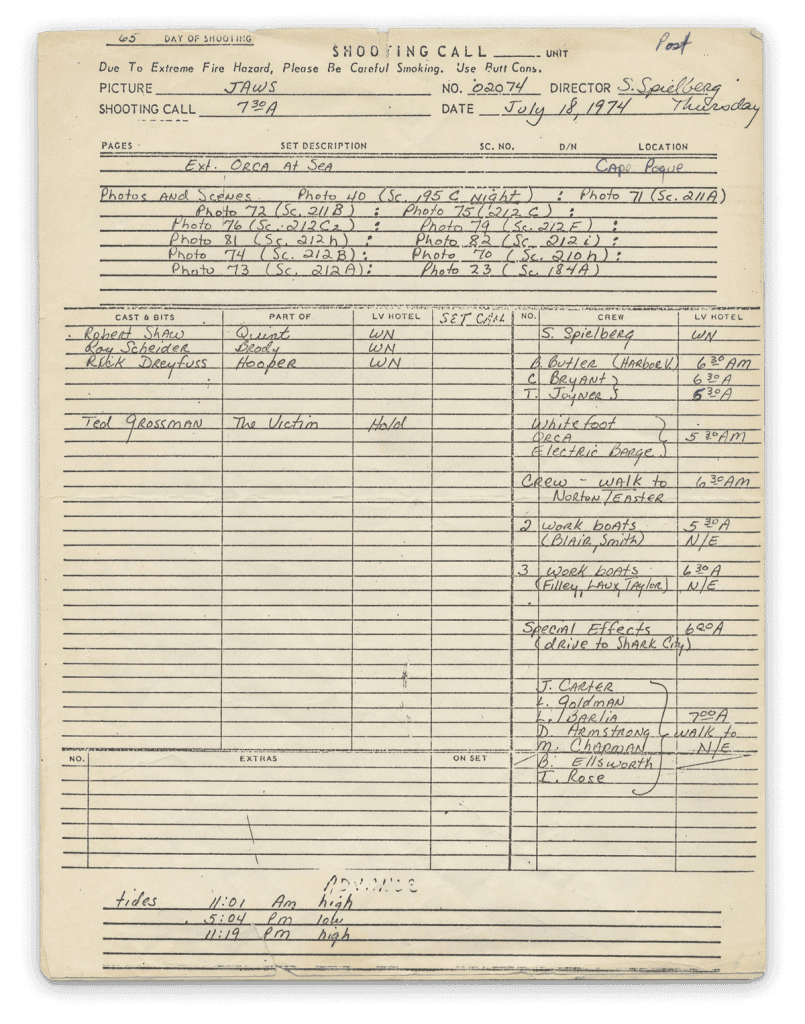 65 DAY OF SHOOTING
SHOOTING CALL UNIT Post
Due To Extreme Fire Hazard, Please Be Careful Smoking. Use Butt Cans.
PICTURE JAWS NO. 02074 DIRECTOR S. Spielberg
SHOOTING CALL 7 30 A DATE July 18, 1974 Thursday
PAGES SET DESCRIPTION SC. NO. D/N LOCATION
Ext. ORCA At Sea Cape Pogue
Photos and Scenes Photo 40 (Sc. 195 C Night) : Photo 71 (Sc. 211A)
Photo 72 (Sc. 211B) : Photo 75 (212 C) :
Photo 76 (Sc. 212C2) : Photo 79 (Sc. 212E) :
Photo 81 (Sc. 212h) : Photo 82 (Sc. 212i) :
Photo 74 (Sc. 212B) : Photo 70 (Sc. 210h) :
Photo 73 (Sc. 212A) : Photo 23 (Sc. 184A)
CAST & BITS PART OF LV HOTEL SET CALL NO. CREW LV HOTEL
Robert Shaw Quint WN S. Spielberg WN
Roy Scheider Brody WN
Rick Dreyfuss Hooper WN B. Butler (Harbor V.) 6 30 AM
C. Bryant } 6 30 A
T. Joyner } 6 30 A
Ted Grossman The Victim Hold Whitefoot
ORCA 5 30 AM
Electric Barge
Crew - walk to 6 30 AM
Norton/Easter
2 work boats 5 30 A
(Blair, Smith) N/E
3 work boats 6 30 A
(Filley, Laux, Taylor) N/E
Special Effects 6 00 A
(drive to Shark City)
J. Carter
L. Goldman
L. Barlia 7 00 A
D. Armstrong walk to
M. Chapman N/E
NO. EXTRAS ON SET B. Ellsworth
I. Rose
ADVANCE
tides 11:01 Am high
5:04 PM low
11:19 PM high